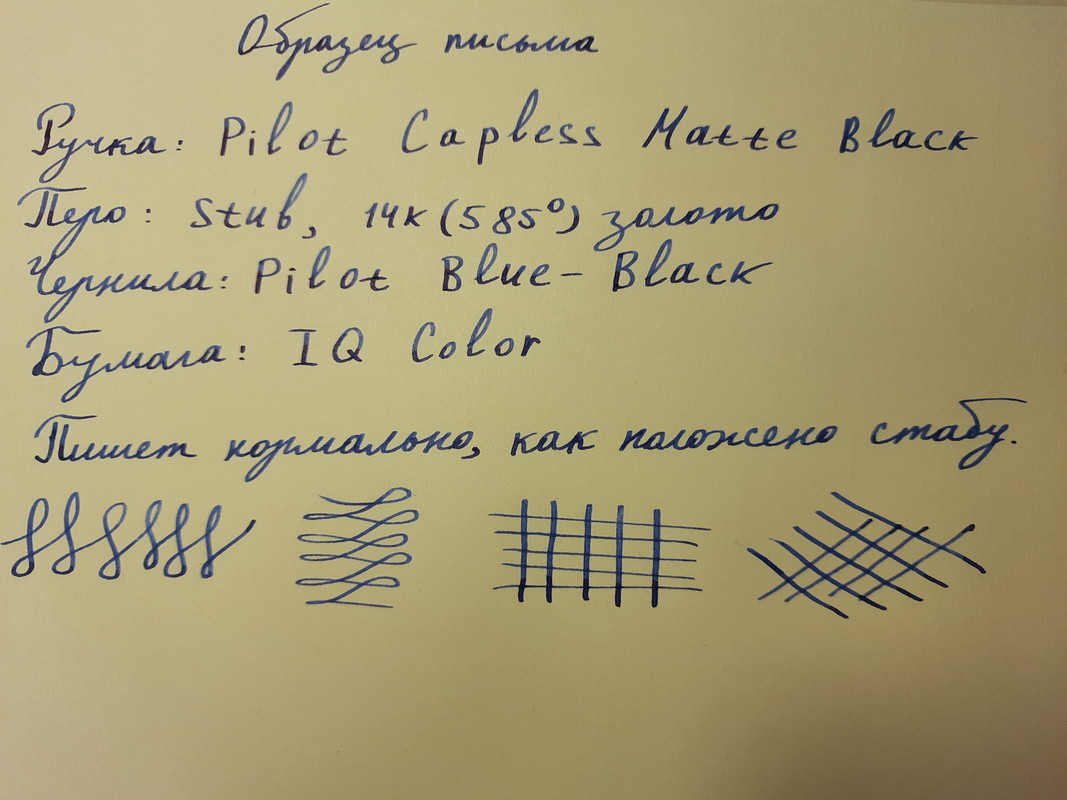 Образец письма
Ручка: Pilot Capless Matte Black
Перо: Stub, 14к (585°) золото
Чернила: Pilot Blue-Black
Бумага: IQ Color
Пишет нормально, как положено стабу.